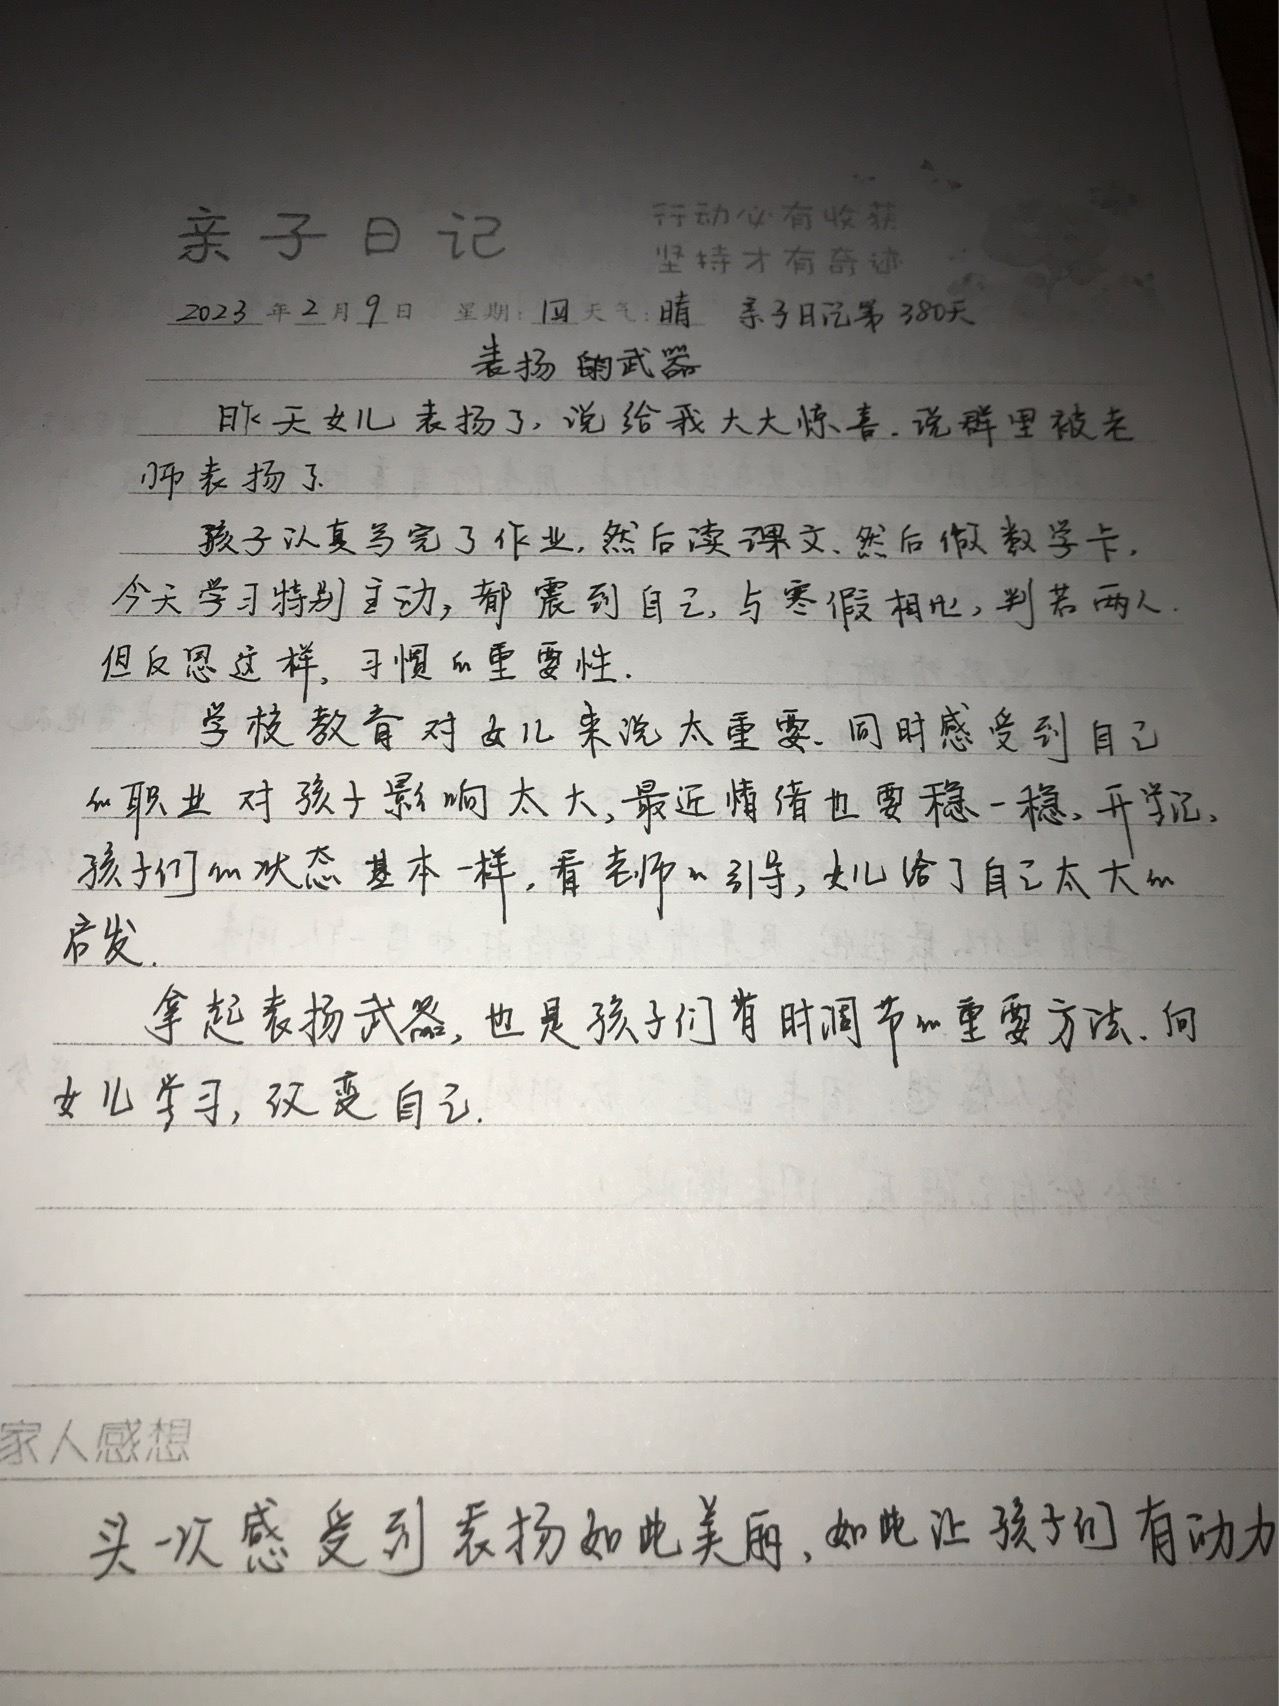 亲子日记
行动必有收获
坚持才有奇迹
2023年2月9日 星期:四 天气:晴 亲子日记第380天
表扬的武器
昨天女儿表扬了,说给我大大惊喜.说群里被老
师表扬了.
孩子认真写完了作业,然后读课文、然后做数学卡,
今天学习特别主动,都震到自己,与寒假相比,判若两人.
但反思这样,习惯的重要性.
学校教育对女儿来说太重要.同时感受到自己
的职业对孩子影响太大,最近情绪也要稳一稳,开学记,
孩子们的状态基本一样,看老师的引导,女儿给了自己太大的
启发.
拿起表扬武器,也是孩子们有时调节的重要方法.向
女儿学习,改变自己.
家人感想
头一次感受到表扬如此美丽,如此让孩子们有动力